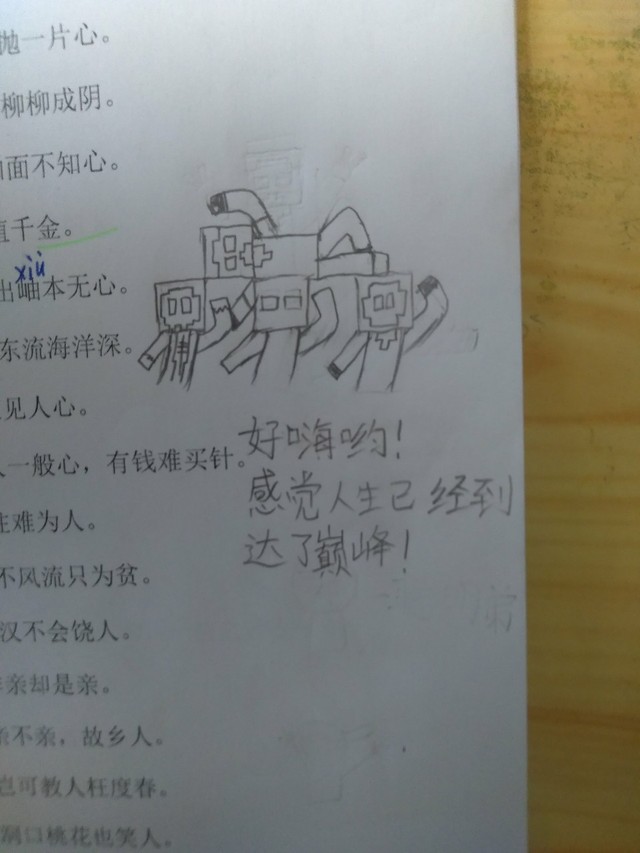 抛一片心。
柳柳成阴。
面不知心。
值千金。
xiù
出岫本无心。
东流海洋深。
见人心。
人一般心，有钱难买针。
难为人。
不风流只为贫。
汉不会饶人。
亲却是亲。
亲不亲，故乡人。
岂可教人枉度春。
洞口桃花也笑人。
好嗨哟！
感觉人生已经到
达了巅峰！